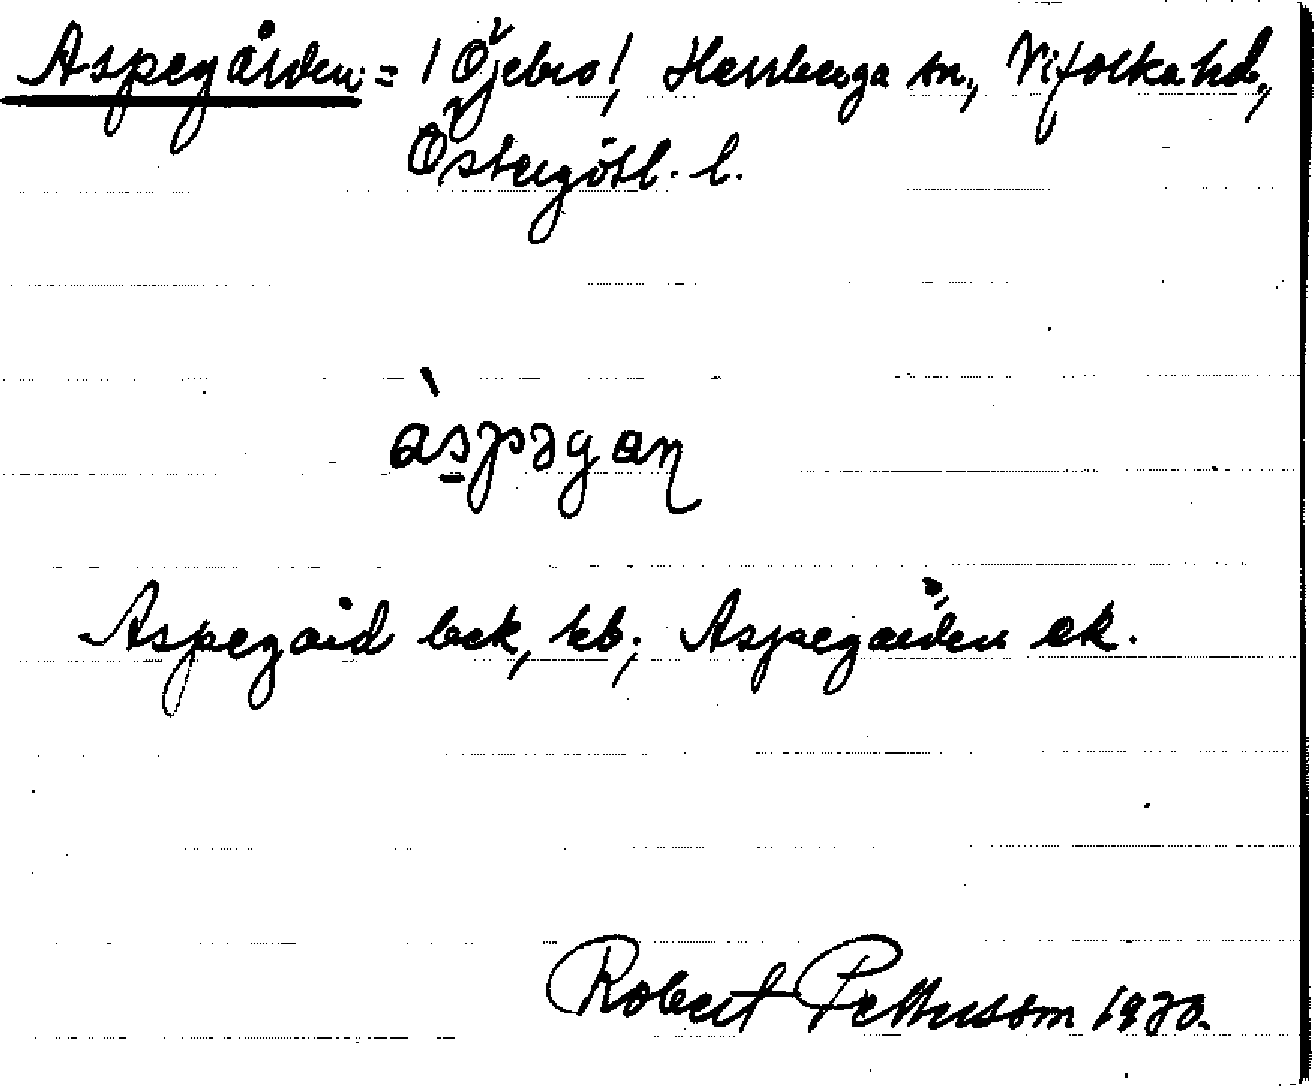 Aspegården = / Öjebro / Herrberga sn, Vifolka hd.,
Östergötl. l.
àspəgaɳ
Aspegård bek, kb; Aspegården ek.
Robert Pettersson 1930.